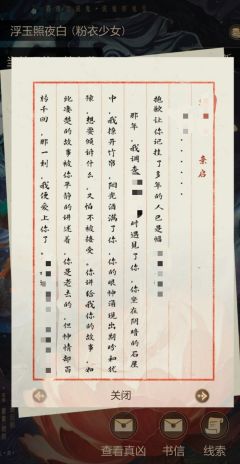 浮玉照夜白 (粉衣少女)
亲启
抱歉让你记挂了多年的人已是幅
那年,我调查
时遇见了你,你坐在阴暗的石屋
中,我撩开竹帘,阳光洒满了你,你的眼神涌现出期吩和犹
豫,想要倾诉什么,又怕不被接受。你讲给我你的故事,如
此凄楚的故事被你平静的讲述着,你是老去的,但神情却百
转千回,那一刻,我便爱上你了。
关闭
查看真凶
书信
线索